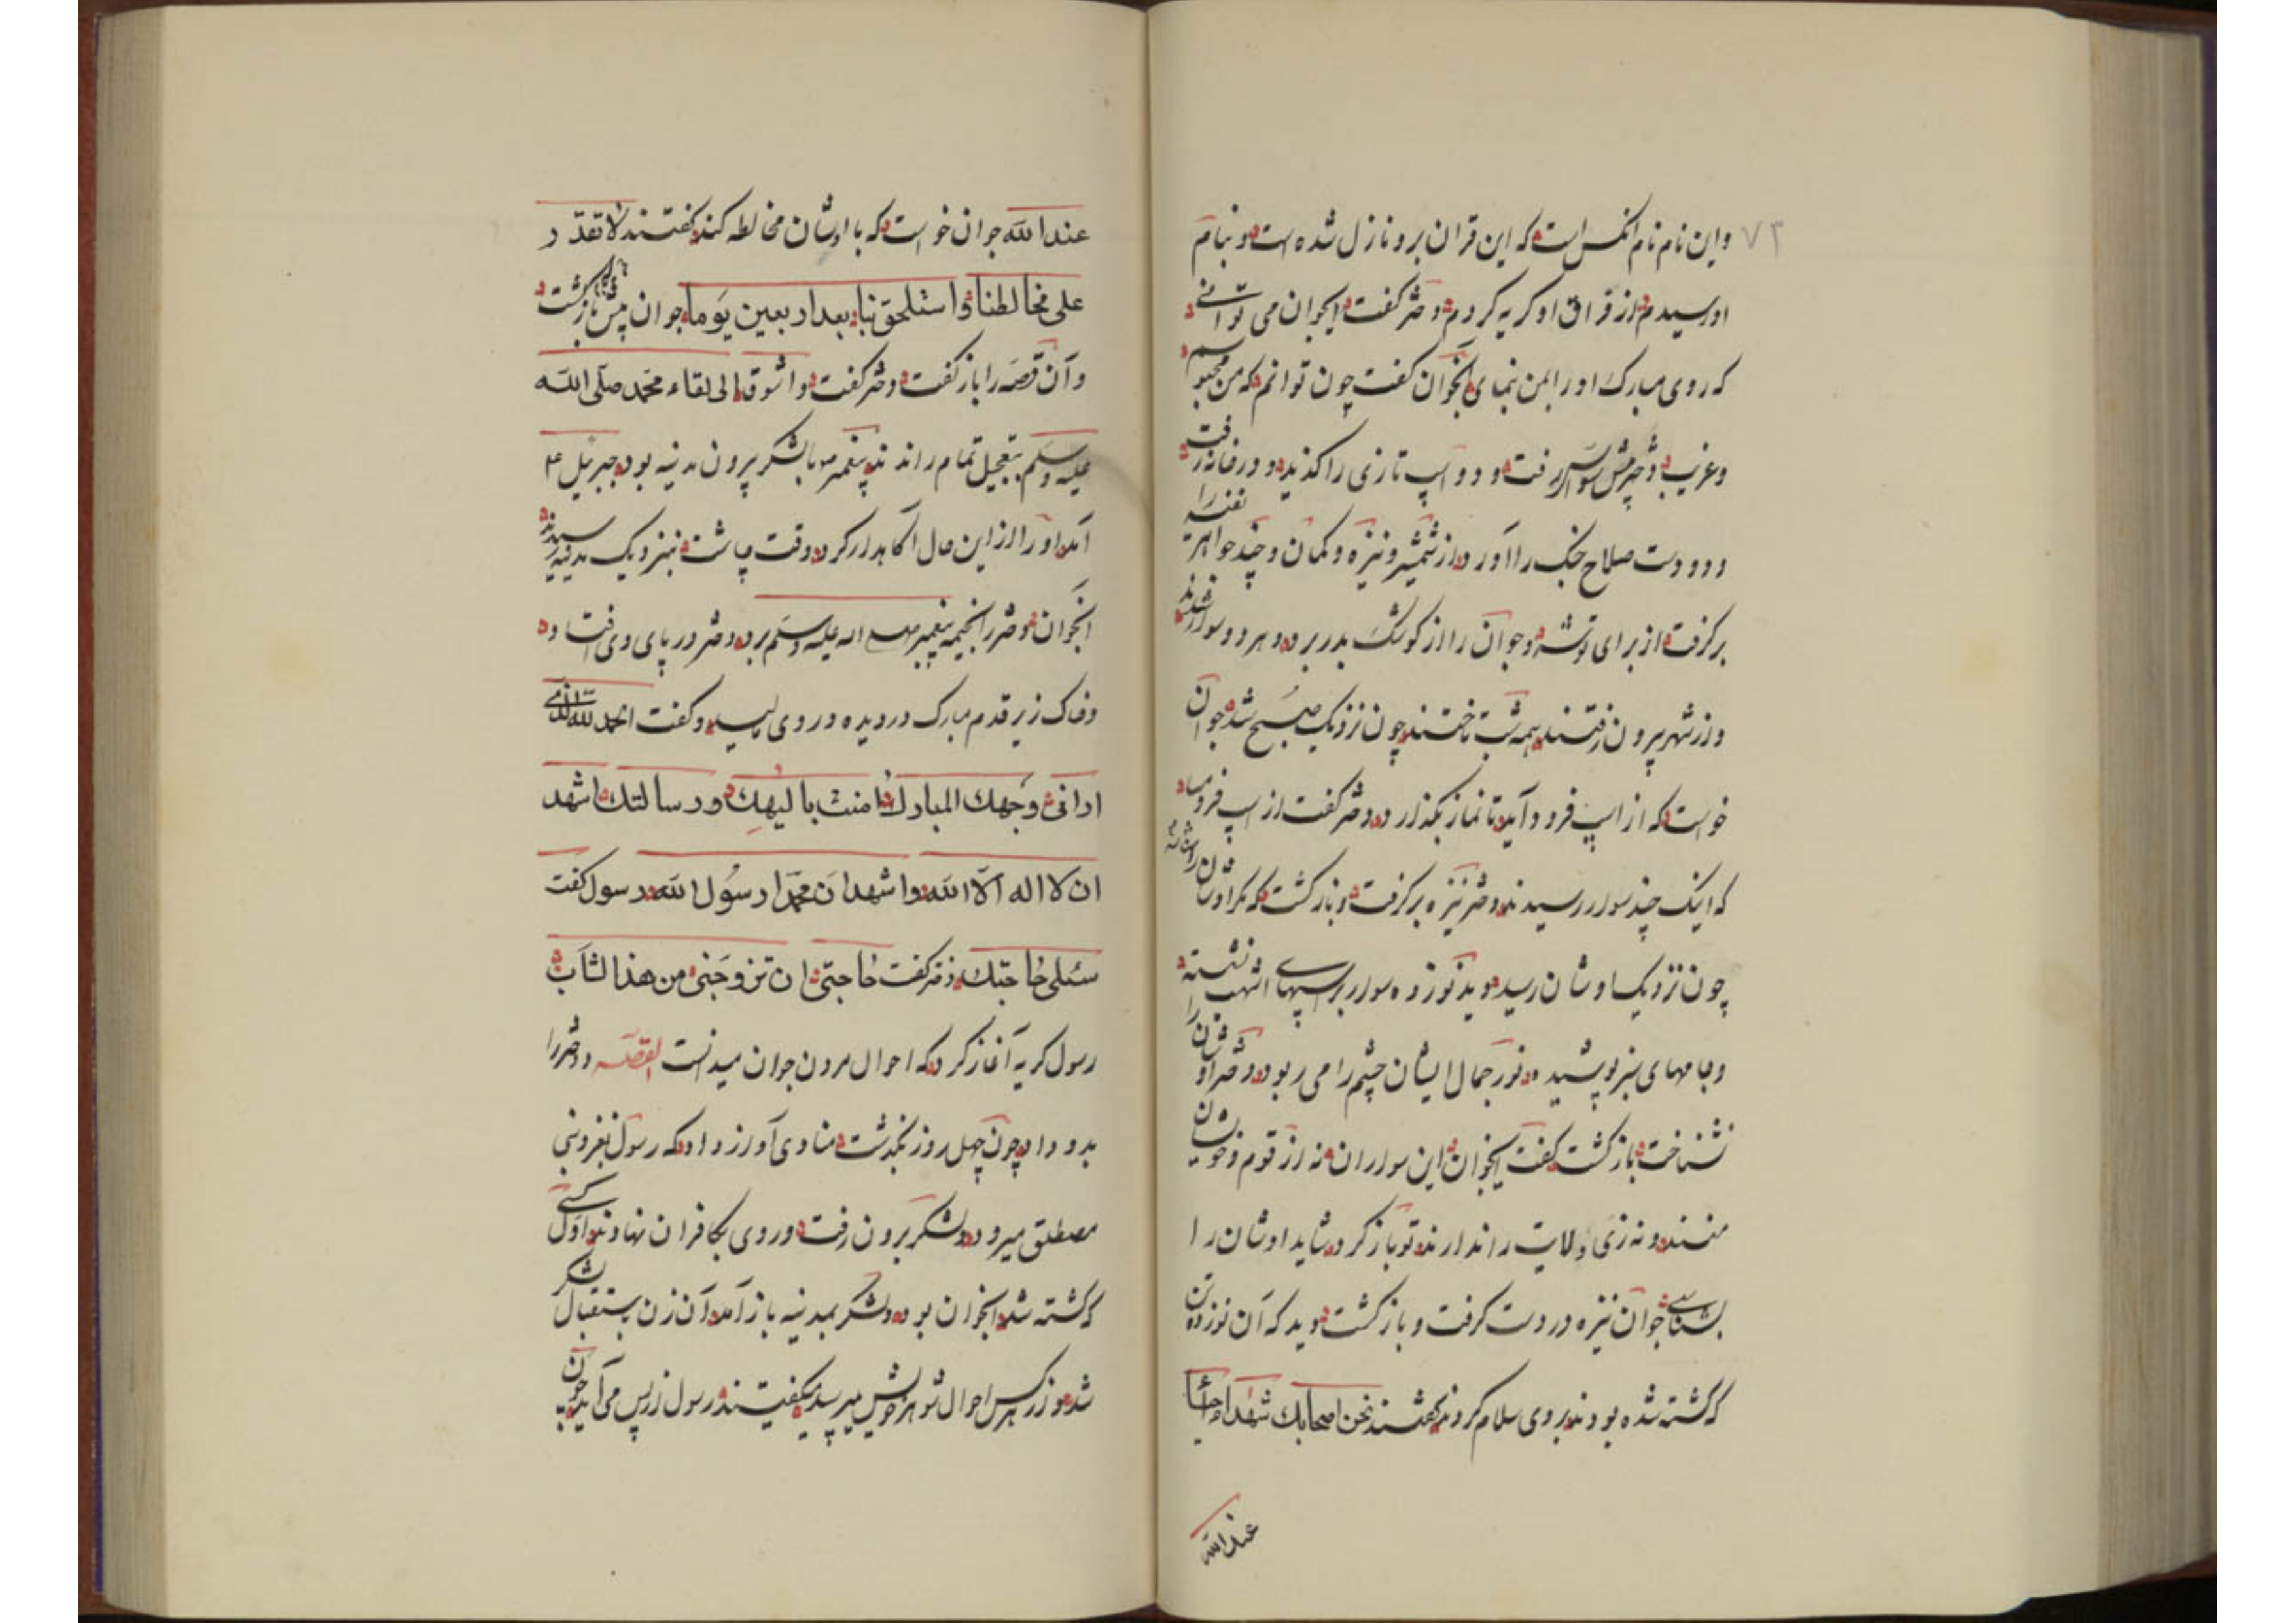 ۷۳
واین نام نام انکس است که این قران برو نازل شده است و بنام
او رسیدم از فراق او کریه کردم دختر کفت ایجوان می توانے
که روی مبارک او را بمن نمای آنجوان کفت چون توانم که من محبوسم
وغریب دختر پیش سوار رفت و دو اسپ تازی را کزید و در خانه رفت
و دو دست صلاح جنک را آورد از شمشیر و نیزه و کمان و چند جواهر نفیسه را
برکرفت از برای توشه و جوان را از کوشک بدر برد و هر دو سوار شدند
و از شهر بیرون رفتند همه شب تاختند چون نزدیک صبح شد جوان
خواست که از اسپ فرود آید تا نماز بکذارد دختر کفت از اسپ فرو میا
که اینک چند سوار رسیدند دختر نیزه برکرفت و بازکشت که مکر اوشان را
چون نزدیک اوشان رسید دید نوزده سوار بر اسپهای اشهب نشسته
وجامهای سبز پوشیده نور جمال ایشان چشم را می ربود دختر اوشان را
نشناخت بازکشت کفت ایجوان این سواران نه از قوم وخویشان
منند و نه زی ولایت را ندارند تو بازکرد شاید اوشان را
بشناسے جوان نیزه در دست کرفت و بازکشت دید که آن نوزده تن
که کشته شده بودند بروی سلام کردند کفتند نحن اصحابك شهداء احیاء
عند الله
عند الله جوان خواست که با اوشان مخالطه کند کفتند لا تقدر
علی مخالطنا واستلحق بنا بعد اربعین یوما جوان پیش بازکشت
وآن قصه را باز کفت دختر کفت واشوقا الی لقاء محمد صلی الله
علیه وسلم بتعجیل تمام راندند پیغمبر با لشکر بیرون مدینه بود جبرئیل ع
آمد او را از این حال آکاه کرد وقت چاشت بنزدیک مدینه رسیدند
آنجوان دختر را بخیمه پیغمبر صلی الله علیه وسلم برد دختر در پای وی افتاد
وخاک زیر قدم مبارک در دیده و روی مالید و کفت الحمد لله الذی
ارانی وجهك المبارك امنت بالیهك و رسالتك اشهد
ان لا اله الا الله واشهد ان محمدا رسول الله رسول کفت
سئلی حاجتك دختر کفت حاجتی ان تزوجنی من هذا الشاب
رسول کریه آغاز کرد که احوال مردن جوان میدانست القصه دختر را
بدو داد چون چهل روز بکذشت منادی آواز داد که رسول بغزو بنی
مصطلق میرود لشکر بیرون رفت و روی بکافران نهادند اول کسے
که کشته شد آنجوان بود لشکر بمدینه باز آمد آن زن باستقبال لشکر
شد و از هر کس احوال شوهر خویش میپرسید میکفتند رسول از پس می آید چون